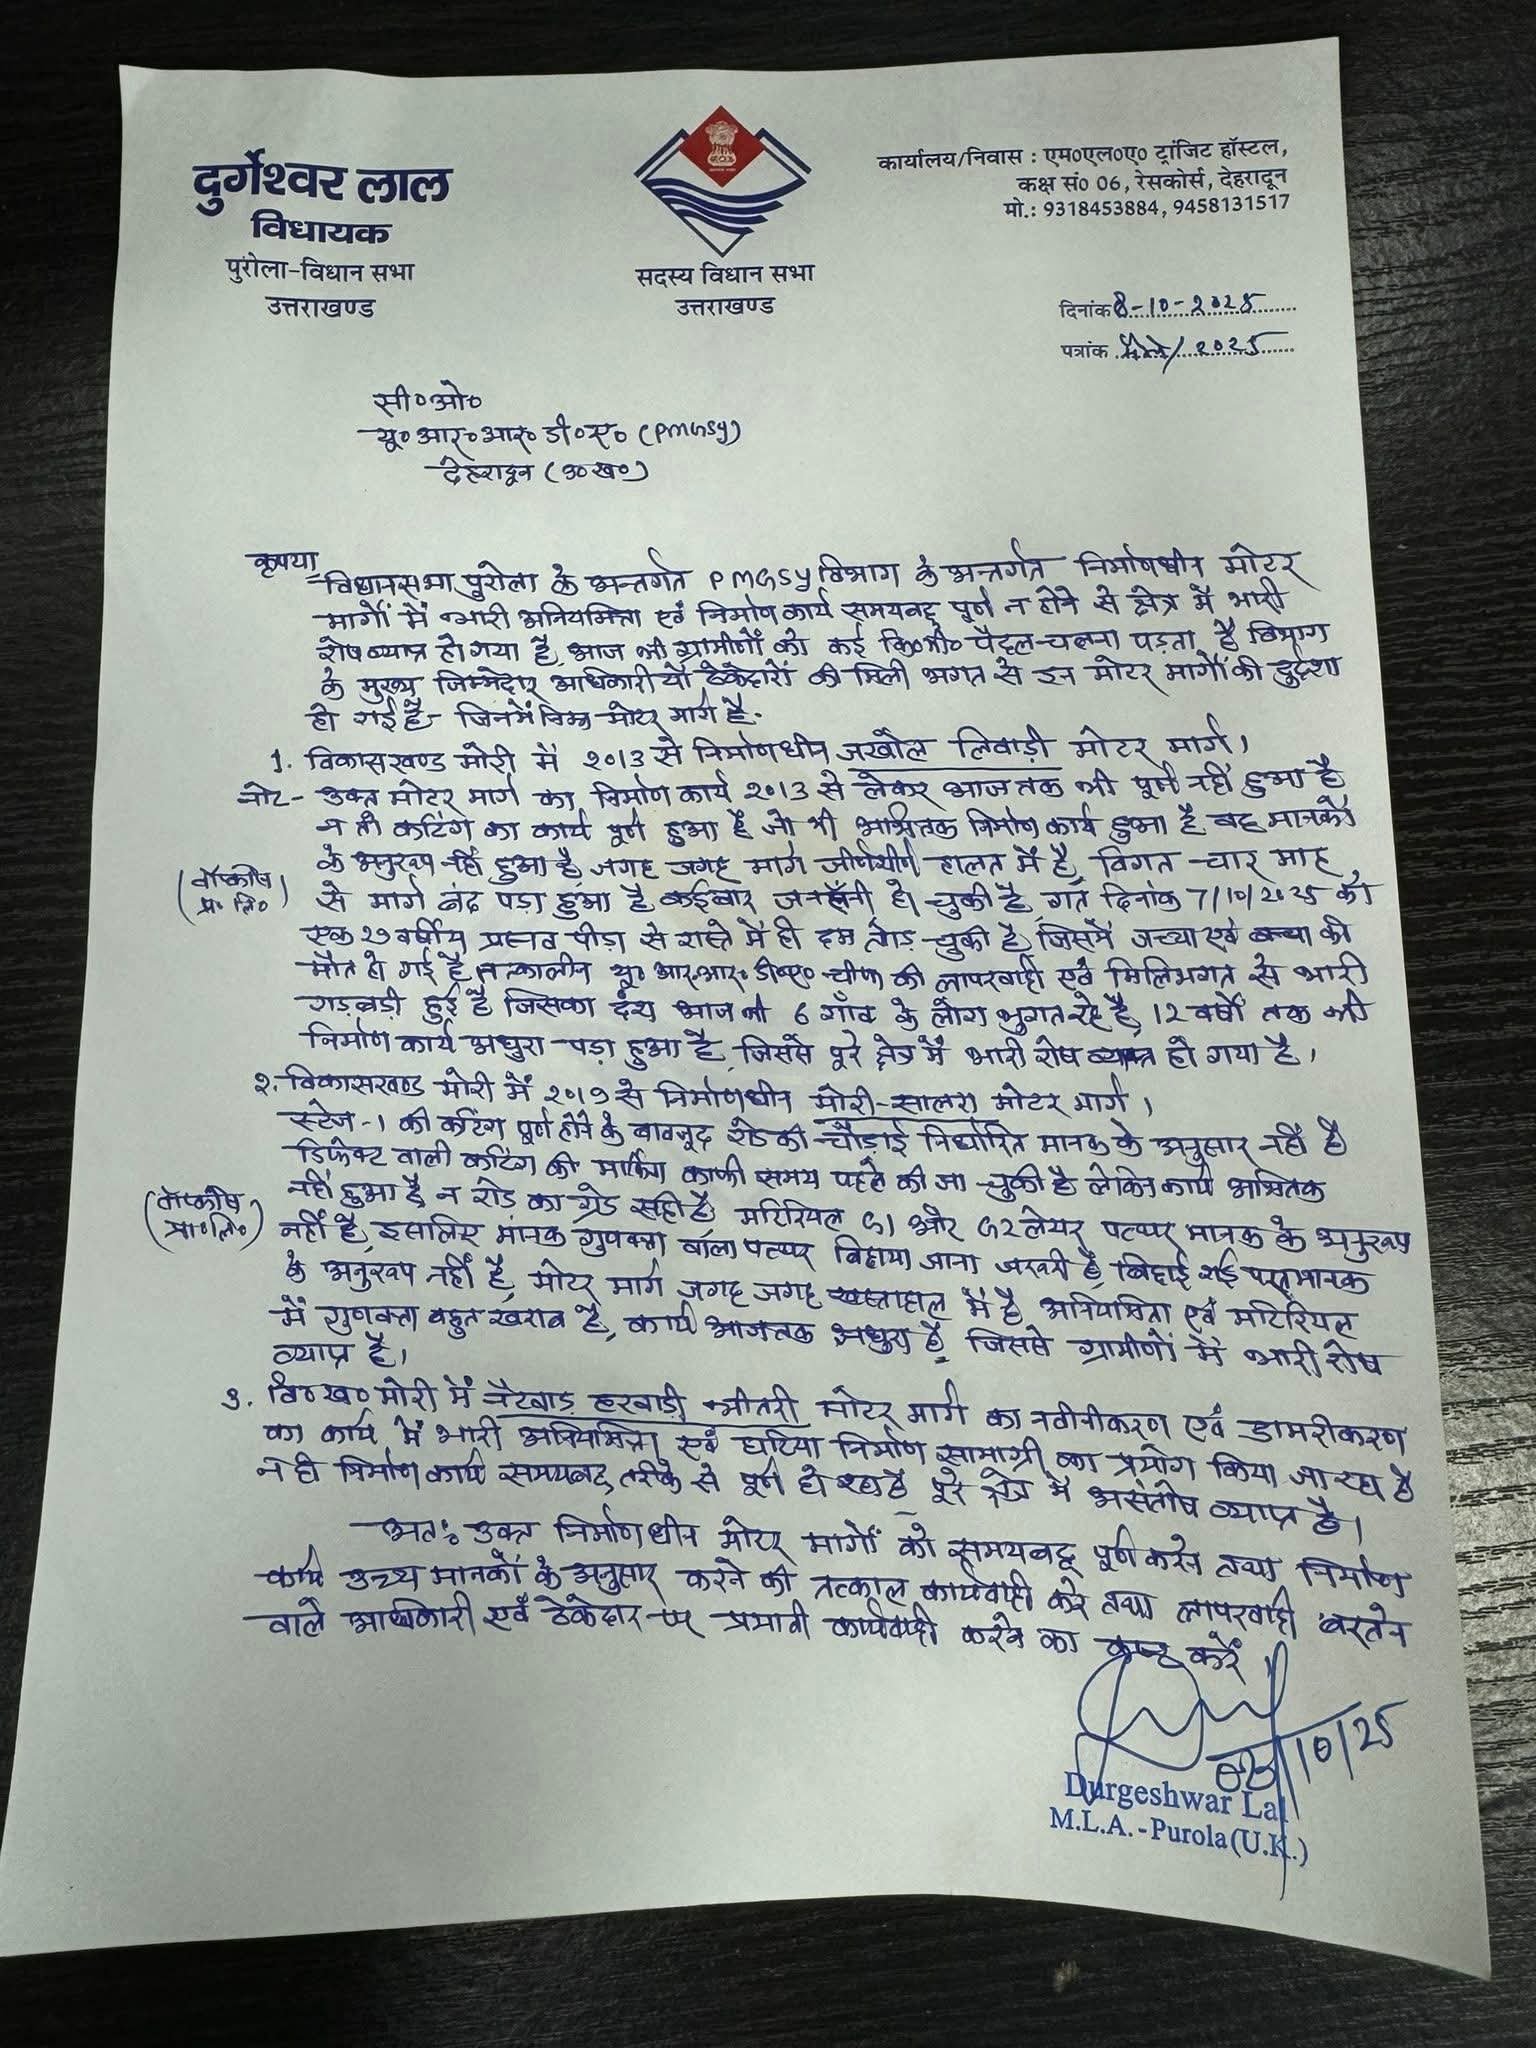 दुर्गेश्वर लाल
विधायक
पुरोला-विधान सभा
उत्तराखण्ड
सदस्य विधान सभा
उत्तराखण्ड
कार्यालय/निवास : एम०एल०ए० ट्रांजिट हॉस्टल,
कक्ष सं० 06, रेसकोर्स, देहरादून
मो.: 9318453884, 9458131517
दिनांक 8-10-2025
पत्रांक /2025
सी०ओ०
यू०आर०आर०डी०ए० (PMGSY)
देहरादून (उ०ख०)
कृपया
विधानसभा पुरोला के अन्तर्गत PMGSY विभाग के अन्तर्गत निर्माणधीन मोटर
मार्गों में भारी अनियमित्ता एवं निर्माण कार्य समयबद्द पूर्ण न होने से क्षेत्र में भारी
रोष व्याप्त हो गया है, आज भी ग्रामीणों को कई कि०मी० पैदल चलना पड़ता है विभाग
के मुख्य जिम्मेदार अधिकारीयों ठेकेदारों की मिली भगत से इन मोटर मार्गों की दुर्दशा
हो गई है- जिनमें निम्न मोटर मार्ग है-
1. विकासखण्ड मोरी में 2013 से निर्माणधीन जखोल लिवाड़ी मोटर मार्ग।
नोट- उक्त मोटर मार्ग का निर्माण कार्य 2013 से लेकर आज तक भी पूर्ण नहीं हुआ है
न ती कटिंग का कार्य पूर्ण हुआ है जो भी आश्रितक निर्माण कार्य हुआ है वह मानकों
के अनुरूप नहीं हुआ है, जगह जगह मार्ग जीर्णशीर्ण हालत में है, विगत चार माह
(वॉप्कोष
प्रा० लि०)
से मार्ग बंद पड़ा हुआ है कईबार जनहानी हो चुकी है, गत दिनांक 7/10/2025 को
एक 27 वर्षीय प्रसव पीड़ा से रास्ते में ही दम तोड़ चुकी है जिसमें जच्चा एवं बच्चा की
मौत हो गई है, तत्कालीन यू०आर०आर०डी०ए० चीफ की लापरवाही एवं मिलिभगत से भारी
गड़बड़ी हुई है जिसका दंश आज भी 6 गाँव के लोग भुगत रहे है, 12 वर्षों तक भी
निर्माण कार्य अधुरा पड़ा हुआ है, जिससे पूरे क्षेत्र में भारी रोष व्याप्त हो गया है।
2. विकासखण्ड मोरी में 2019 से निर्माणधीन मोरी-सालरा मोटर मार्ग।
स्टेज-1 की कटिंग पूर्ण होने के बावजूद रोड की चौड़ाई निर्धारित मानक के अनुसार नहीं है
डिफेक्ट वाली कटिंग की मार्किंग काफी समय पहले की जा चुकी है लेकिन कार्य आश्रितक
नहीं हुआ है, न रोड का ग्रेड सही है, मटिरियल G1 और G2 लेयर पत्थर मानक के अनुरूप
(वॉप्कोष
प्रा०लि०)
नहीं है, इसलिए मानक गुणवत्ता वाला पत्थर बिछाया जाना जरूरी है, बिछाई गई मानक
के अनुरूप नहीं है, मोटर मार्ग जगह जगह खस्ताहाल में है अनियमित्ता एवं मटिरियल
में गुणवत्ता बहुत खराब है, कार्य आजतक अधुरा है, जिससे ग्रामीणों में भारी रोष
व्याप्त है।
3. वि०ख० मोरी में नैटवाड़ हरवाड़ी भीतरी मोटर मार्ग का नवीनीकरण एवं डामरीकरण
का कार्य में भारी अनियमित्ता एवं घटिया निर्माण सामाग्री का प्रयोग किया जा रहा है
न ही निर्माण कार्य समयबद्द तरीके से पूर्ण हो रहा है पूरे क्षेत्र में असंतोष व्याप्त है।
अतः उक्त निर्माणधीन मोटर मार्गों को समयबद्द पूर्ण करने तथा निर्माण
कार्य उच्च मानकों के अनुसार करने की तत्काल कार्यवाही करे तथा लापरवाही बरतने
वाले अधिकारी एवं ठेकेदार पर प्रभावी कार्यवाही करने का कष्ट करें
08/10/25
Durgeshwar Lal
M.L.A.-Purola(U.K.)